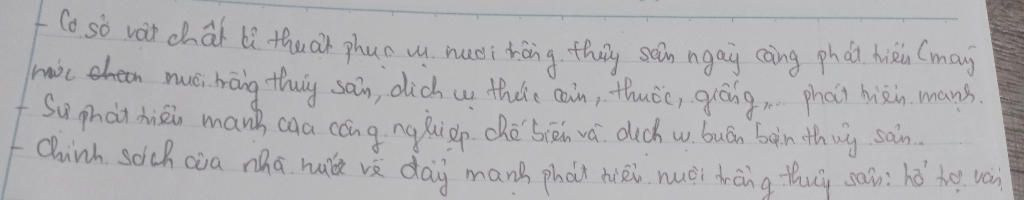 - Cơ sở vật chất kĩ thuật phục vụ nuôi trồng thủy sản ngày càng phát triển (máy
móc nuôi trồng thủy sản, dịch vụ thức ăn, thuốc, giống,... phát triển mạnh.
- Sự phát triển mạnh của công nghiệp chế biến và dịch vụ buôn bán thủy sản.
- Chính sách của nhà nước về đẩy mạnh phát triển nuôi trồng thủy sản: hổ trợ vốn